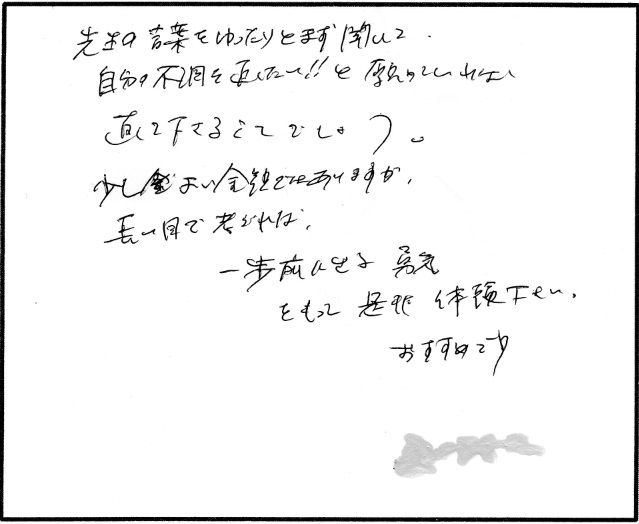 先生の言葉をゆったりとまず聞いて、
自分の不調を直したい!!と願っていれば
直して下さることでしょう。
少し高い金額ではありますが、
長い目で考えれば、
一歩前に出る 勇気
をもって 是非 体験下さい。
おすすめです